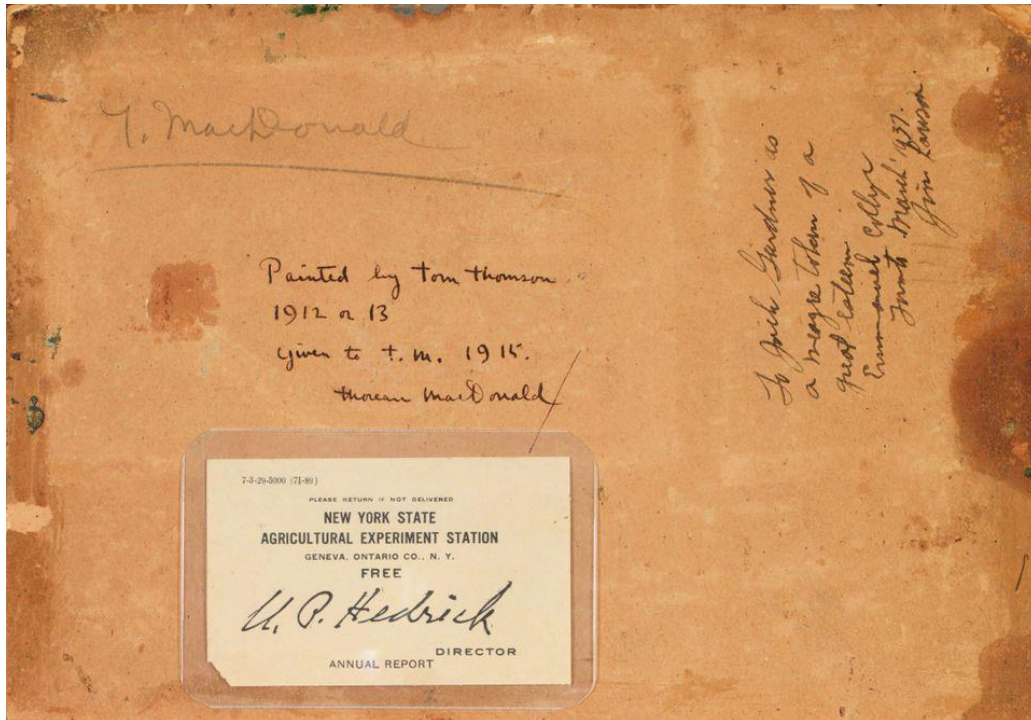 T. MacDonald
Painted by Tom Thomson
1912 or 13
Given to T.M. 1915.
Thoreau MacDonald
To Jack Gardner as
a meagre token of a
great esteem
Emmanuel College
Toronto March 1937.
Jim Lawson.
7-3-29-5000 (71-80)
PLEASE RETURN IF NOT DELIVERED
NEW YORK STATE
AGRICULTURAL EXPERIMENT STATION
GENEVA, ONTARIO CO., N. Y.
FREE
U. P. Hedrick
DIRECTOR
ANNUAL REPORT